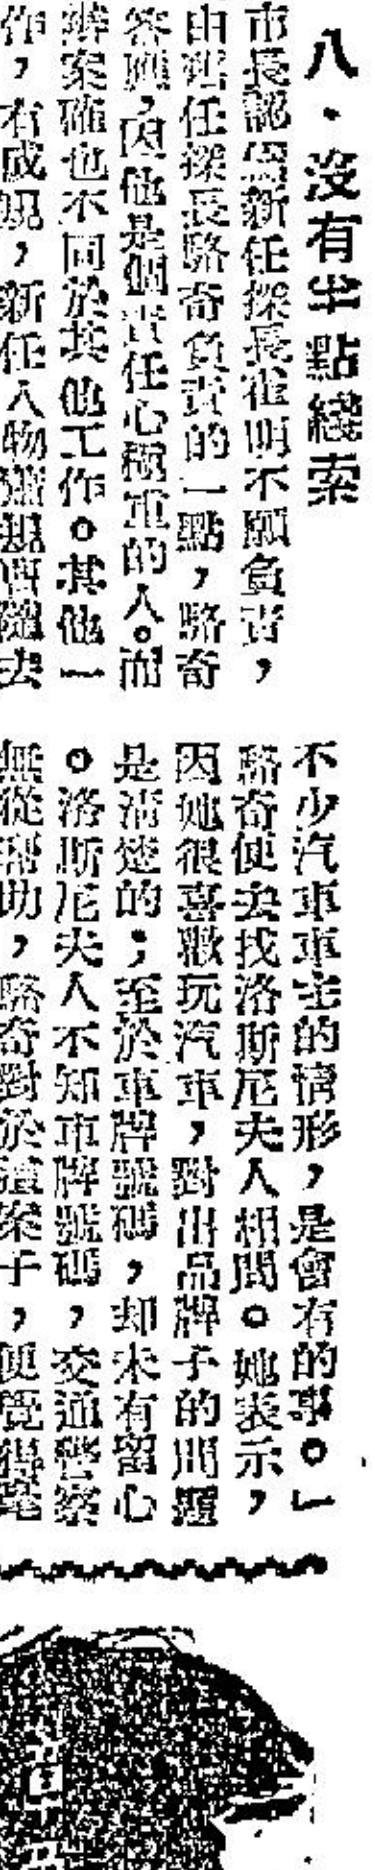 八・沒有半點綫索
市長認爲新任探長霍明不願負責，
由舊任探長駱奇負責的一點，駱奇
答應，因他是個責任心極重的人。而
辦案確也不同於其他工作。其他一
作，有成規，新任人物
不少汽車車主的情形，是會有的事。」
駱奇便去找洛斯尼夫人相問。她表示，
因她很喜歡玩汽車，對出品牌子的問題
是清楚的；至於車牌號碼，却未有留心
。洛斯尼夫人不知車牌號碼，交通警察
無從幫助，駱奇對於這案子，便覺得毫